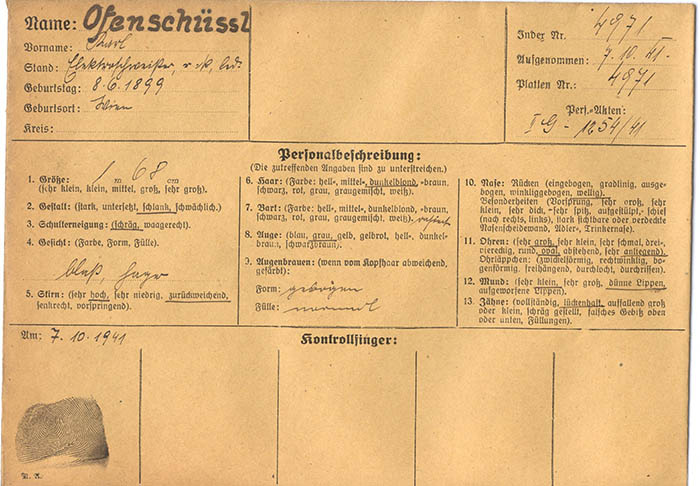 Name: Ofenschüssl
Vorname: Karl
Stand: Elektroschweißer, r.-k., led.
Geburtstag: 8.6.1899
Geburtsort: Wien
Kreis:
Index Nr. 4971
Aufgenommen: 7.10.41.
Platten Nr.: 4971
Pers.-Akten:
I G - 1254/41
Personalbeschreibung:
(Die zutreffenden Angaben sind zu unterstreichen.)
1. Größe: 1 m 68 cm
(sehr klein, klein, mittel, groß, sehr groß).
2. Gestalt: (stark, untersetzt, schlank, schwächlich.)
3. Schulterneigung: (schräg, waagerecht.)
4. Gesicht: (Farbe, Form, Fülle).
blaß, hager
5. Stirn: (sehr hoch, sehr niedrig, zurückweichend,
senkrecht, vorspringend).
6. Haar: (Farbe: hell-, mittel-, dunkelblond, -braun,
schwarz, rot, grau, graugemischt, weiß).
7. Bart: (Farbe: hell-, mittel-, dunkelblond, -braun,
schwarz, rot, grau, graugemischt, weiß)
8. Auge: (blau, grau, gelb, gelbrot, hell-, dunkel-
braun, schwarzbraun).
9. Augenbrauen: (wenn vom Kopfhaar abweichend,
gefärbt):
Form: gebogen
Fülle: normal
10. Nase: Rücken (eingebogen, gradlinig, ausge-
bogen, winkliggebogen, wellig).
Besonderheiten (Vorsprung, sehr groß, sehr
klein, sehr dick, -sehr spitz, aufgestülpt,- schief
(nach rechts, links) stark sichtbare oder verdeckte
Nasenscheidewand, Adler-, Trinkernase).
11. Ohren: (sehr groß, sehr klein, sehr schmal, drei-,
viereckig, rund, oval, abstehend, sehr anliegend).
Ohrläppchen: (zwickelförmig, rechtwinklig, bo-
genförmig, freihängend, durchlocht, durchrissen).
12. Mund: (sehr klein, sehr groß, dünne Lippen,
aufgeworfene Lippen).
13. Zähne: (vollständig, lückenhaft, auffallend groß
oder klein, schräg gestellt, falsches Gebiß oben
oder unten, Füllungen).
Am: 7.10.1941
Kontrollfinger: